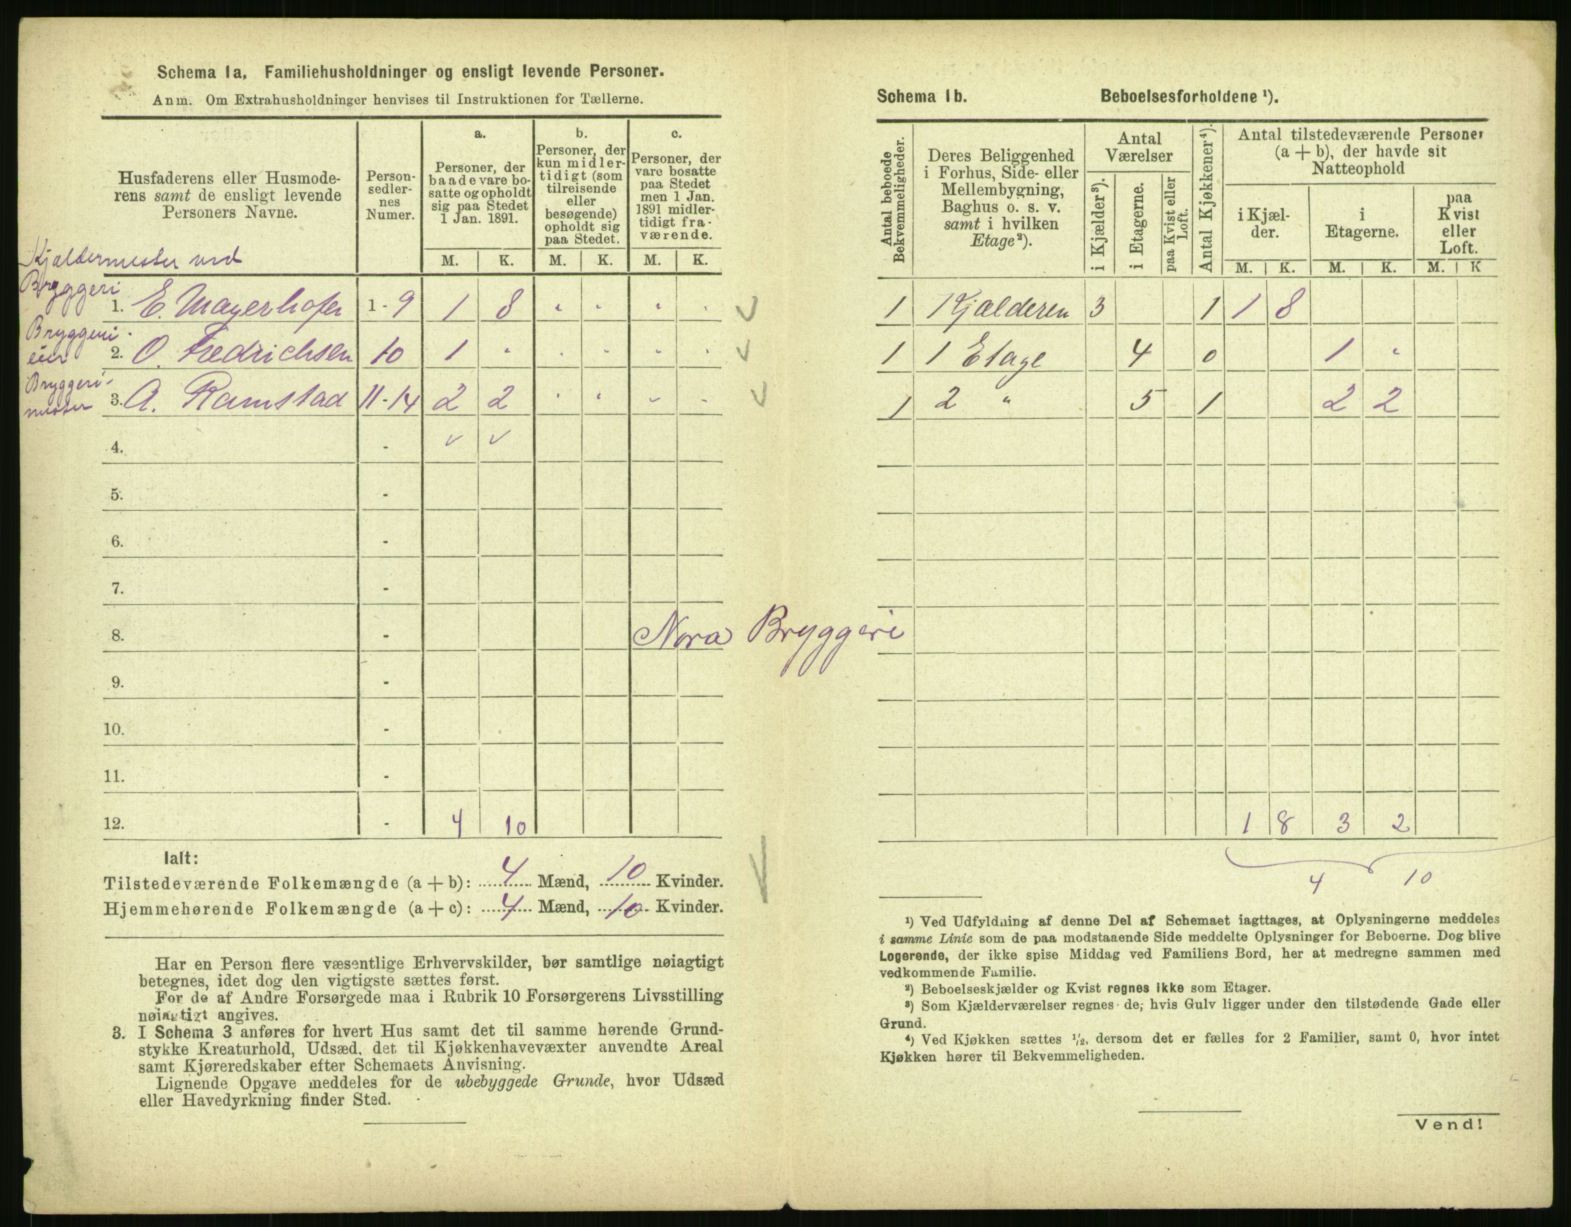 Schema 1a. Familiehusholdninger og ensligt levende Personer.
Anm. Om Extrahusholdninger henvises til Instruktionen for Tællerne.
Husfaderens eller Husmoderens samt de ensligt levende Personers Navne.
Personsedlernes Numer.
a.
Personer, der baade vare bosatte og opholdt sig paa Stedet 1 Jan. 1891.
b.
Personer, der kun midlertidigt (som tilreisende eller besøgende) opholdt sig paa Stedet.
c.
Personer, der vare bosatte paa Stedet men 1 Jan. 1891 midlertidigt fraværende.
M. K. M. K. M. K.
Kjældermester ved Bryggeri
1. E. Mayerhofer 1-9 1 8 " " " "
Bryggeri-eier
2. O. Fredrichsen 10 1 " " " " "
Bryggeri-mester
3. A. Ramstad 11-14 2 2 " " " "
4. -
5. -
6. -
7. -
8. - Nora Bryggeri
9. -
10. -
11. -
12. - 4 10
Ialt:
Tilstedeværende Folkemængde (a + b): 4 Mænd, 10 Kvinder.
Hjemmehørende Folkemængde (a + c): 4 Mænd, 10 Kvinder.
Har en Person flere væsentlige Erhvervskilder, bør samtlige nøiagtigt
betegnes, idet dog den vigtigste sættes først.
For de af Andre Forsørgede maa i Rubrik 10 Forsørgerens Livsstilling
nøiagtigt angives.
3. I Schema 3 anføres for hvert Hus samt det til samme hørende Grund-
stykke Kreaturhold, Udsæd, det til Kjøkkenhavevæxter anvendte Areal
samt Kjøreredskaber efter Schemaets Anvisning.
Lignende Opgave meddeles for de ubebyggede Grunde, hvor Udsæd
eller Havedyrkning finder Sted.
Schema 1b. Beboelsesforholdene ¹).
Antal beboede Bekvemmeligheder.
Deres Beliggenhed i Forhus, Side- eller Mellembygning, Baghus o. s. v. samt i hvilken Etage²).
Antal Værelser
i Kjælder³).
i Etagerne.
paa Kvist eller Loft.
Antal Kjøkkener⁴).
Antal tilstedeværende Personer (a + b), der havde sit Natteophold
i Kjælder.
i Etagerne.
paa Kvist eller Loft.
M. K. M. K. M. K
1 Kjælderen 3 1 1 8
1 1 Etage 4 0 1 "
1 2 " 5 1 2 2
1 8 3 2
4 10
¹) Ved Udfyldning af denne Del af Schemaet iagttages, at Oplysningerne meddeles
i samme Linie som de paa modstaaende Side meddelte Oplysninger for Beboerne. Dog blive
Logerende, der ikke spise Middag ved Familiens Bord, her at medregne sammen med
vedkommende Familie.
²) Beboelseskjælder og Kvist regnes ikke som Etager.
³) Som Kjælderværelser regnes de, hvis Gulv ligger under den tilstødende Gade eller
Grund.
⁴) Ved Kjøkken sættes ½, dersom det er fælles for 2 Familier, samt 0, hvor intet
Kjøkken hører til Bekvemmeligheden.
Vend!